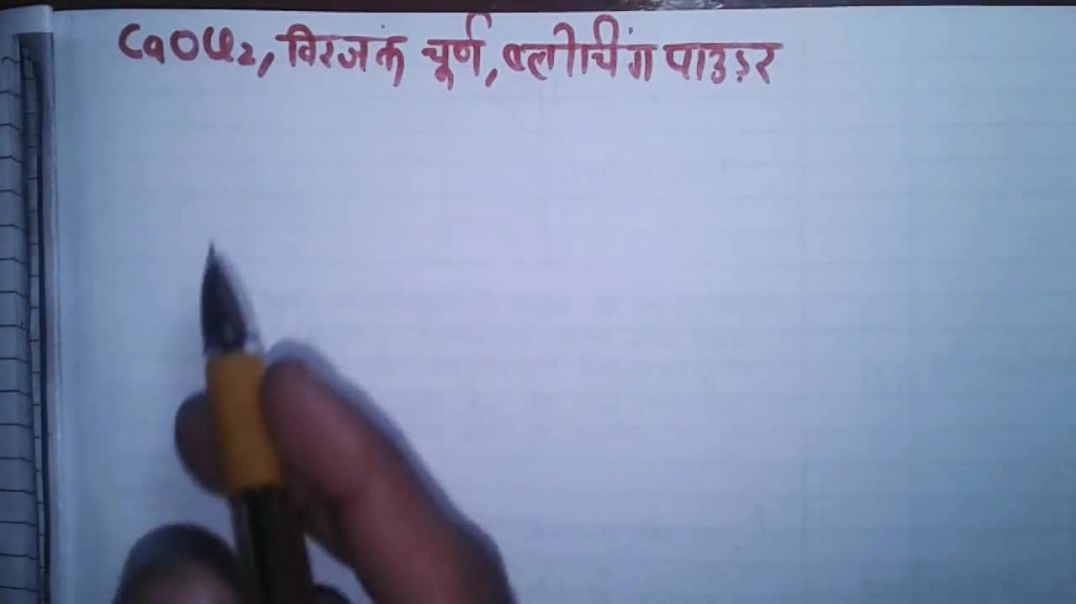 CaOCl₂, विरंजक चूर्ण, ब्लीचिंग पाउडर